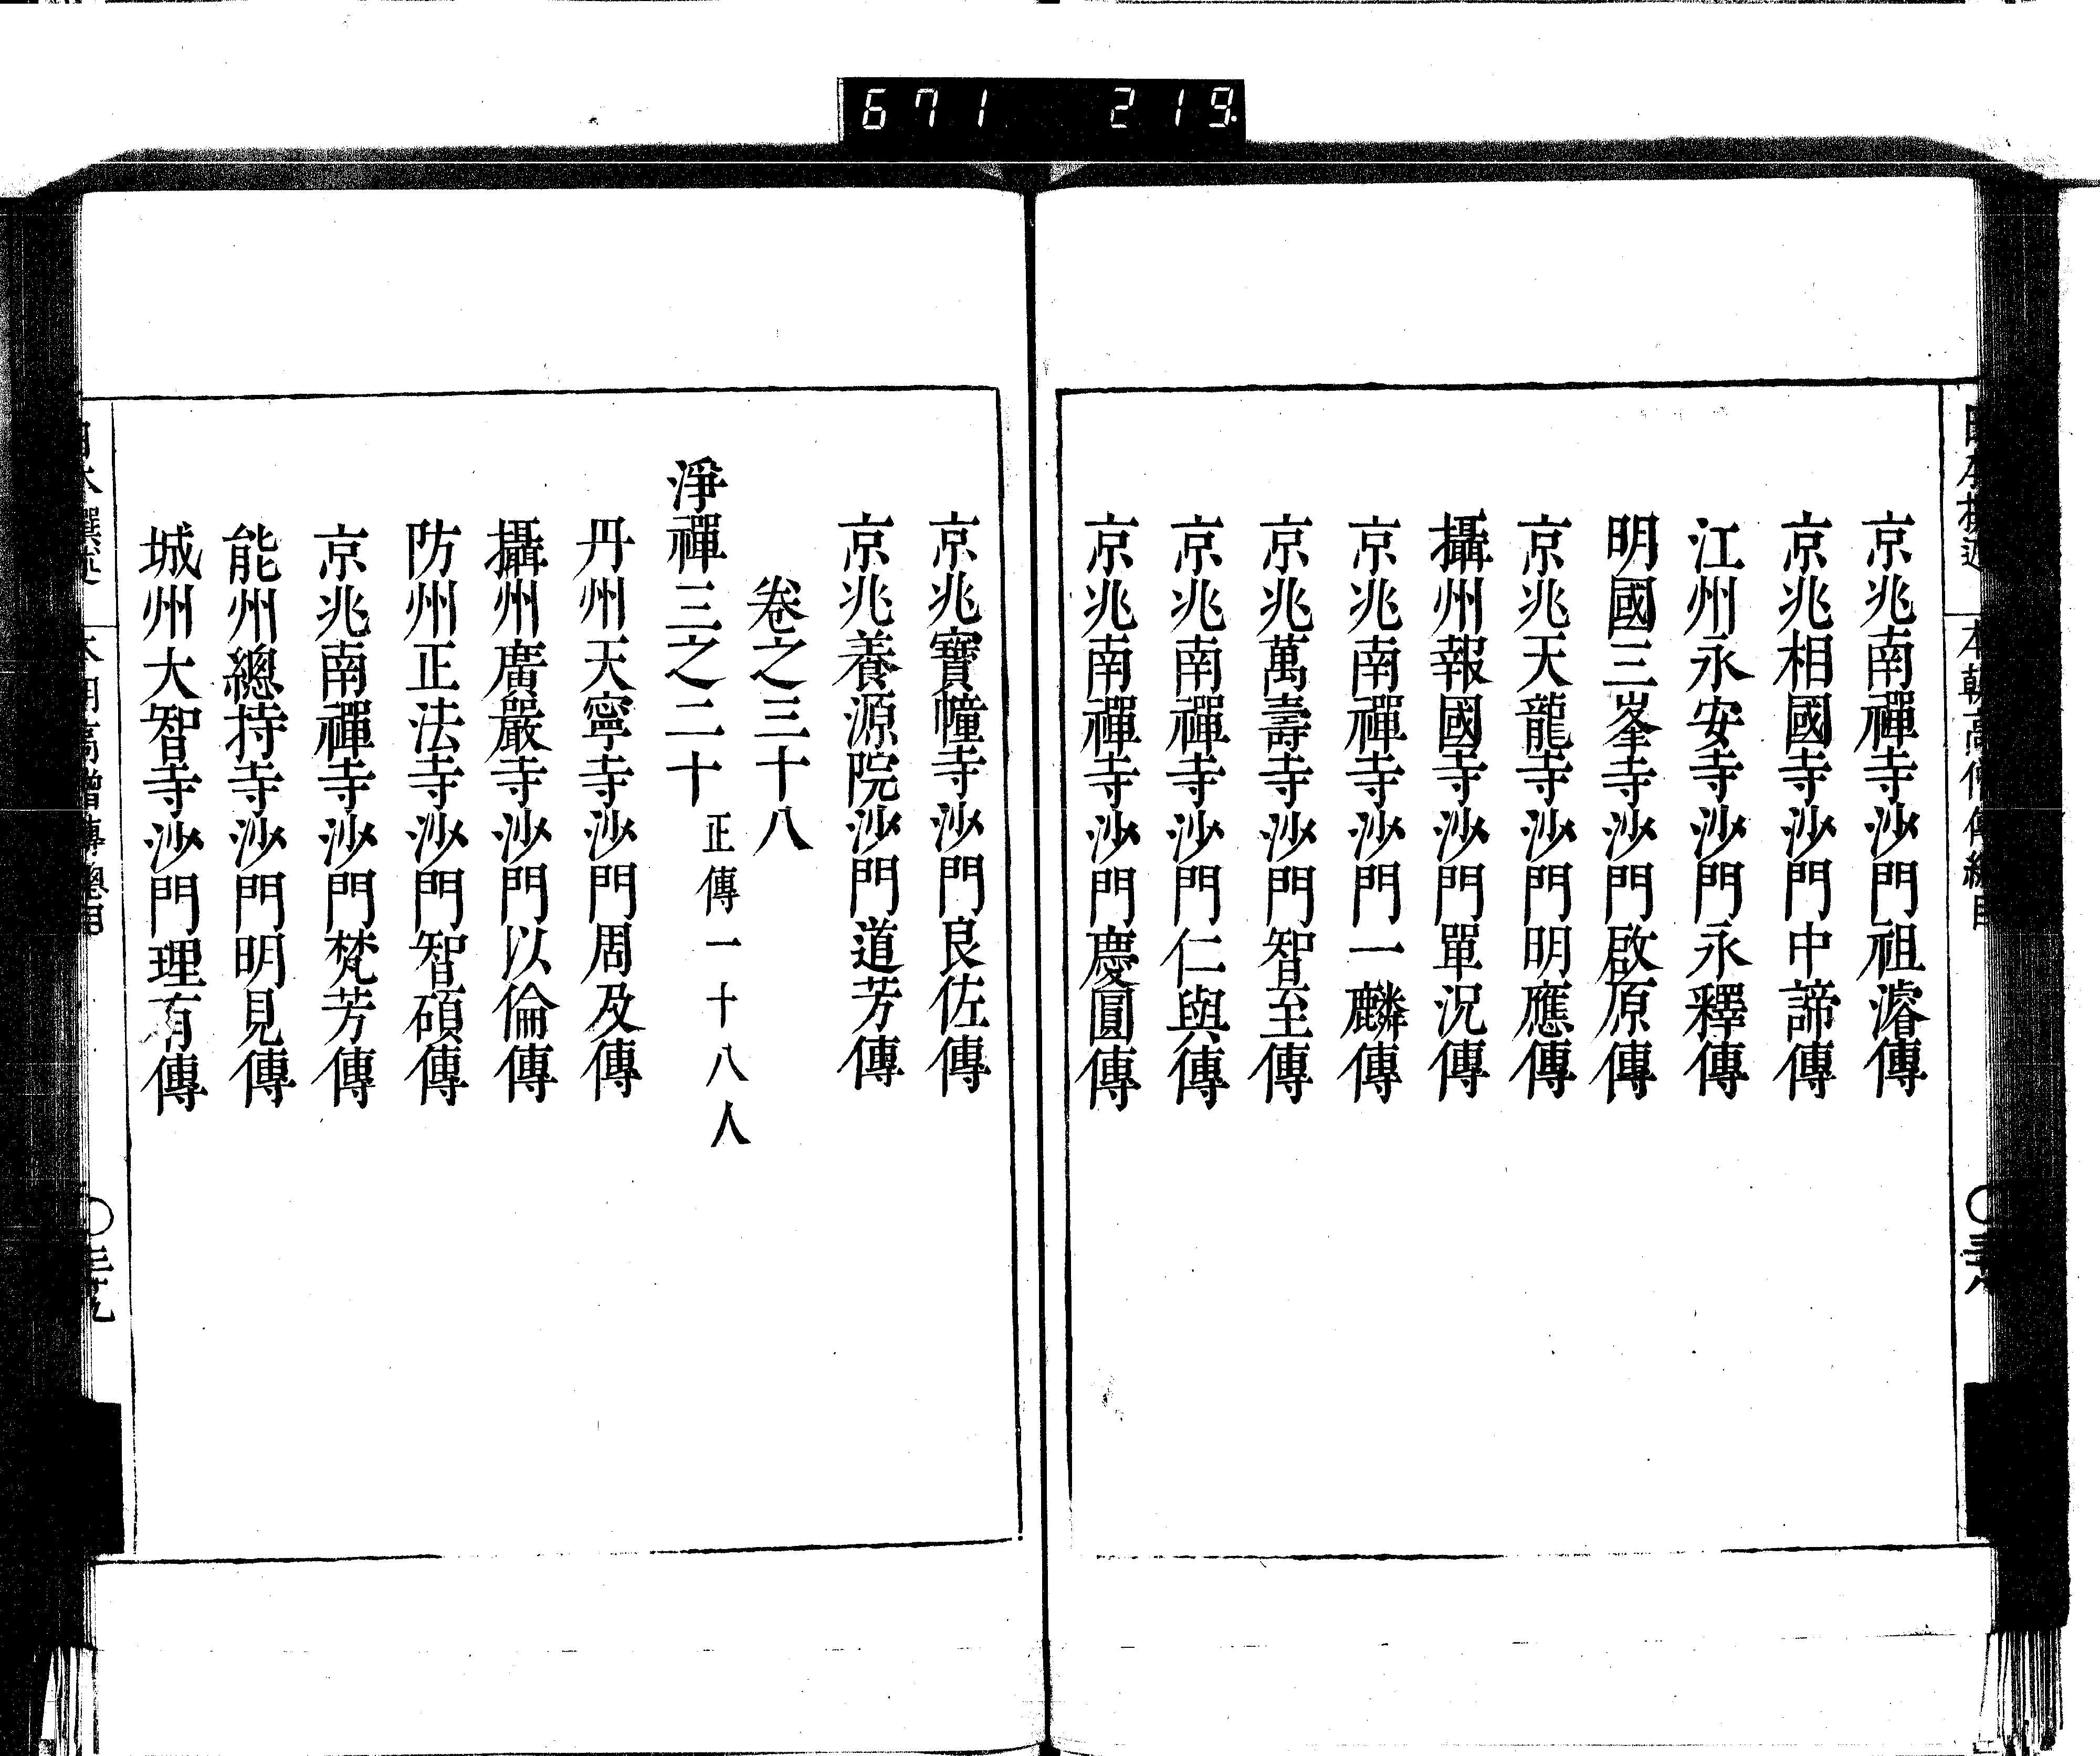 671 219
京兆南禪寺沙門祖濬傳
京兆相國寺沙門中諦傳
江州永安寺沙門永釋傳
明國三峯寺沙門啟原傳
京兆天龍寺沙門明應傳
攝州報國寺沙門單況傳
京兆南禪寺沙門一麟傳
京兆萬壽寺沙門智至傳
京兆南禪寺沙門仁與傳
京兆南禪寺沙門慶圓傳
京兆寶幢寺沙門良佐傳
京兆養源院沙門道芳傳
卷之三十八
淨禪三之二十 正傳一十八人
丹州天寧寺沙門周及傳
攝州廣嚴寺沙門以倫傳
防州正法寺沙門智碩傳
京兆南禪寺沙門梵芳傳
能州總持寺沙門明見傳
城州大智寺沙門理有傳